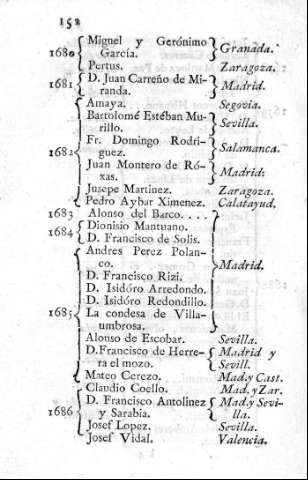 152
Miguel y Gerónimo
1680 García. Granada.
Pertus. Zaragoza.
1681 D. Juan Carreño de Mi-
randa. Madrid.
Amaya. Segovia.
Bartolomé Estéban Mu-
rillo. Sevilla.
Fr. Domingo Rodri-
1682 guez. Salamanca.
Juan Montero de Ró-
xas. Madrid:
Jusepe Martinez. Zaragoza.
Pedro Aybar Ximenez. Calatayud.
1683 Alonso del Barco. . . .
1684 Dionisio Mantuano.
D. Francisco de Solis.
Andres Perez Polan-
co. Madrid.
D. Francisco Rizi.
D. Isidóro Arredondo.
D. Isidóro Redondillo.
1685 La condesa de Villa-
umbrosa.
Alonso de Escobar. Sevilla.
D. Francisco de Herre- Madrid y
ra el mozo. Sevill.
Mateo Cerezo. Mad. y Cast.
Claudio Coello. Mad. y Zar.
D. Francisco Antolinez Mad. y Sevi-
1686 y Sarabia. lla.
Josef Lopez. Sevilla.
Josef Vidal. Valencia.